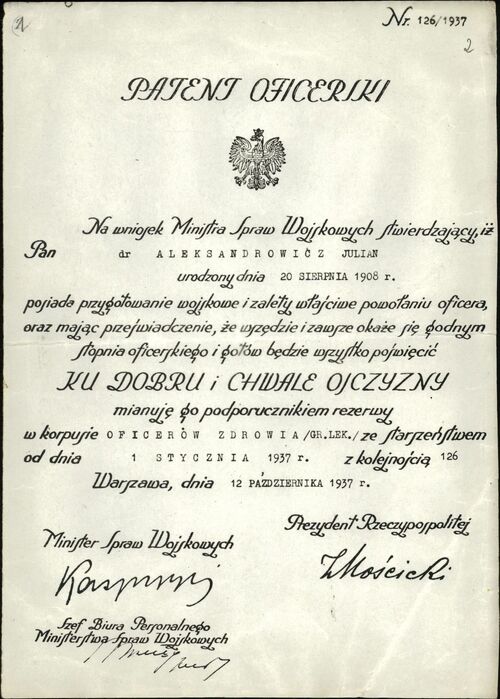 Nr. 126/1937
2
PATENT OFICERSKI
Na wniosek Ministra Spraw Wojskowych stwierdzający, iż
Pan dr ALEKSANDROWICZ JULIAN
urodzony dnia 20 SIERPNIA 1908 r.
posiada przygotowanie wojskowe i zalety właściwe powołaniu oficera,
oraz mając przeświadczenie, że wszędzie i zawsze okaże się godnym
stopnia oficerskiego i gotów będzie wszystko poświęcić
KU DOBRU i CHWALE OJCZYZNY
mianuję go podporucznikiem rezerwy
w korpusie OFICERÓW ZDROWIA/GR.LEK./ ze starszeństwem
od dnia 1 STYCZNIA 1937 r. z kolejnością 126
Warszawa, dnia 12 PAŹDZIERNIKA 1937 r.
Prezydent Rzeczypospolitej
IMościcki
Minister Spraw Wojskowych
Kasprzycki
Szef Biura Personalnego
Ministerstwa Spraw Wojskowych